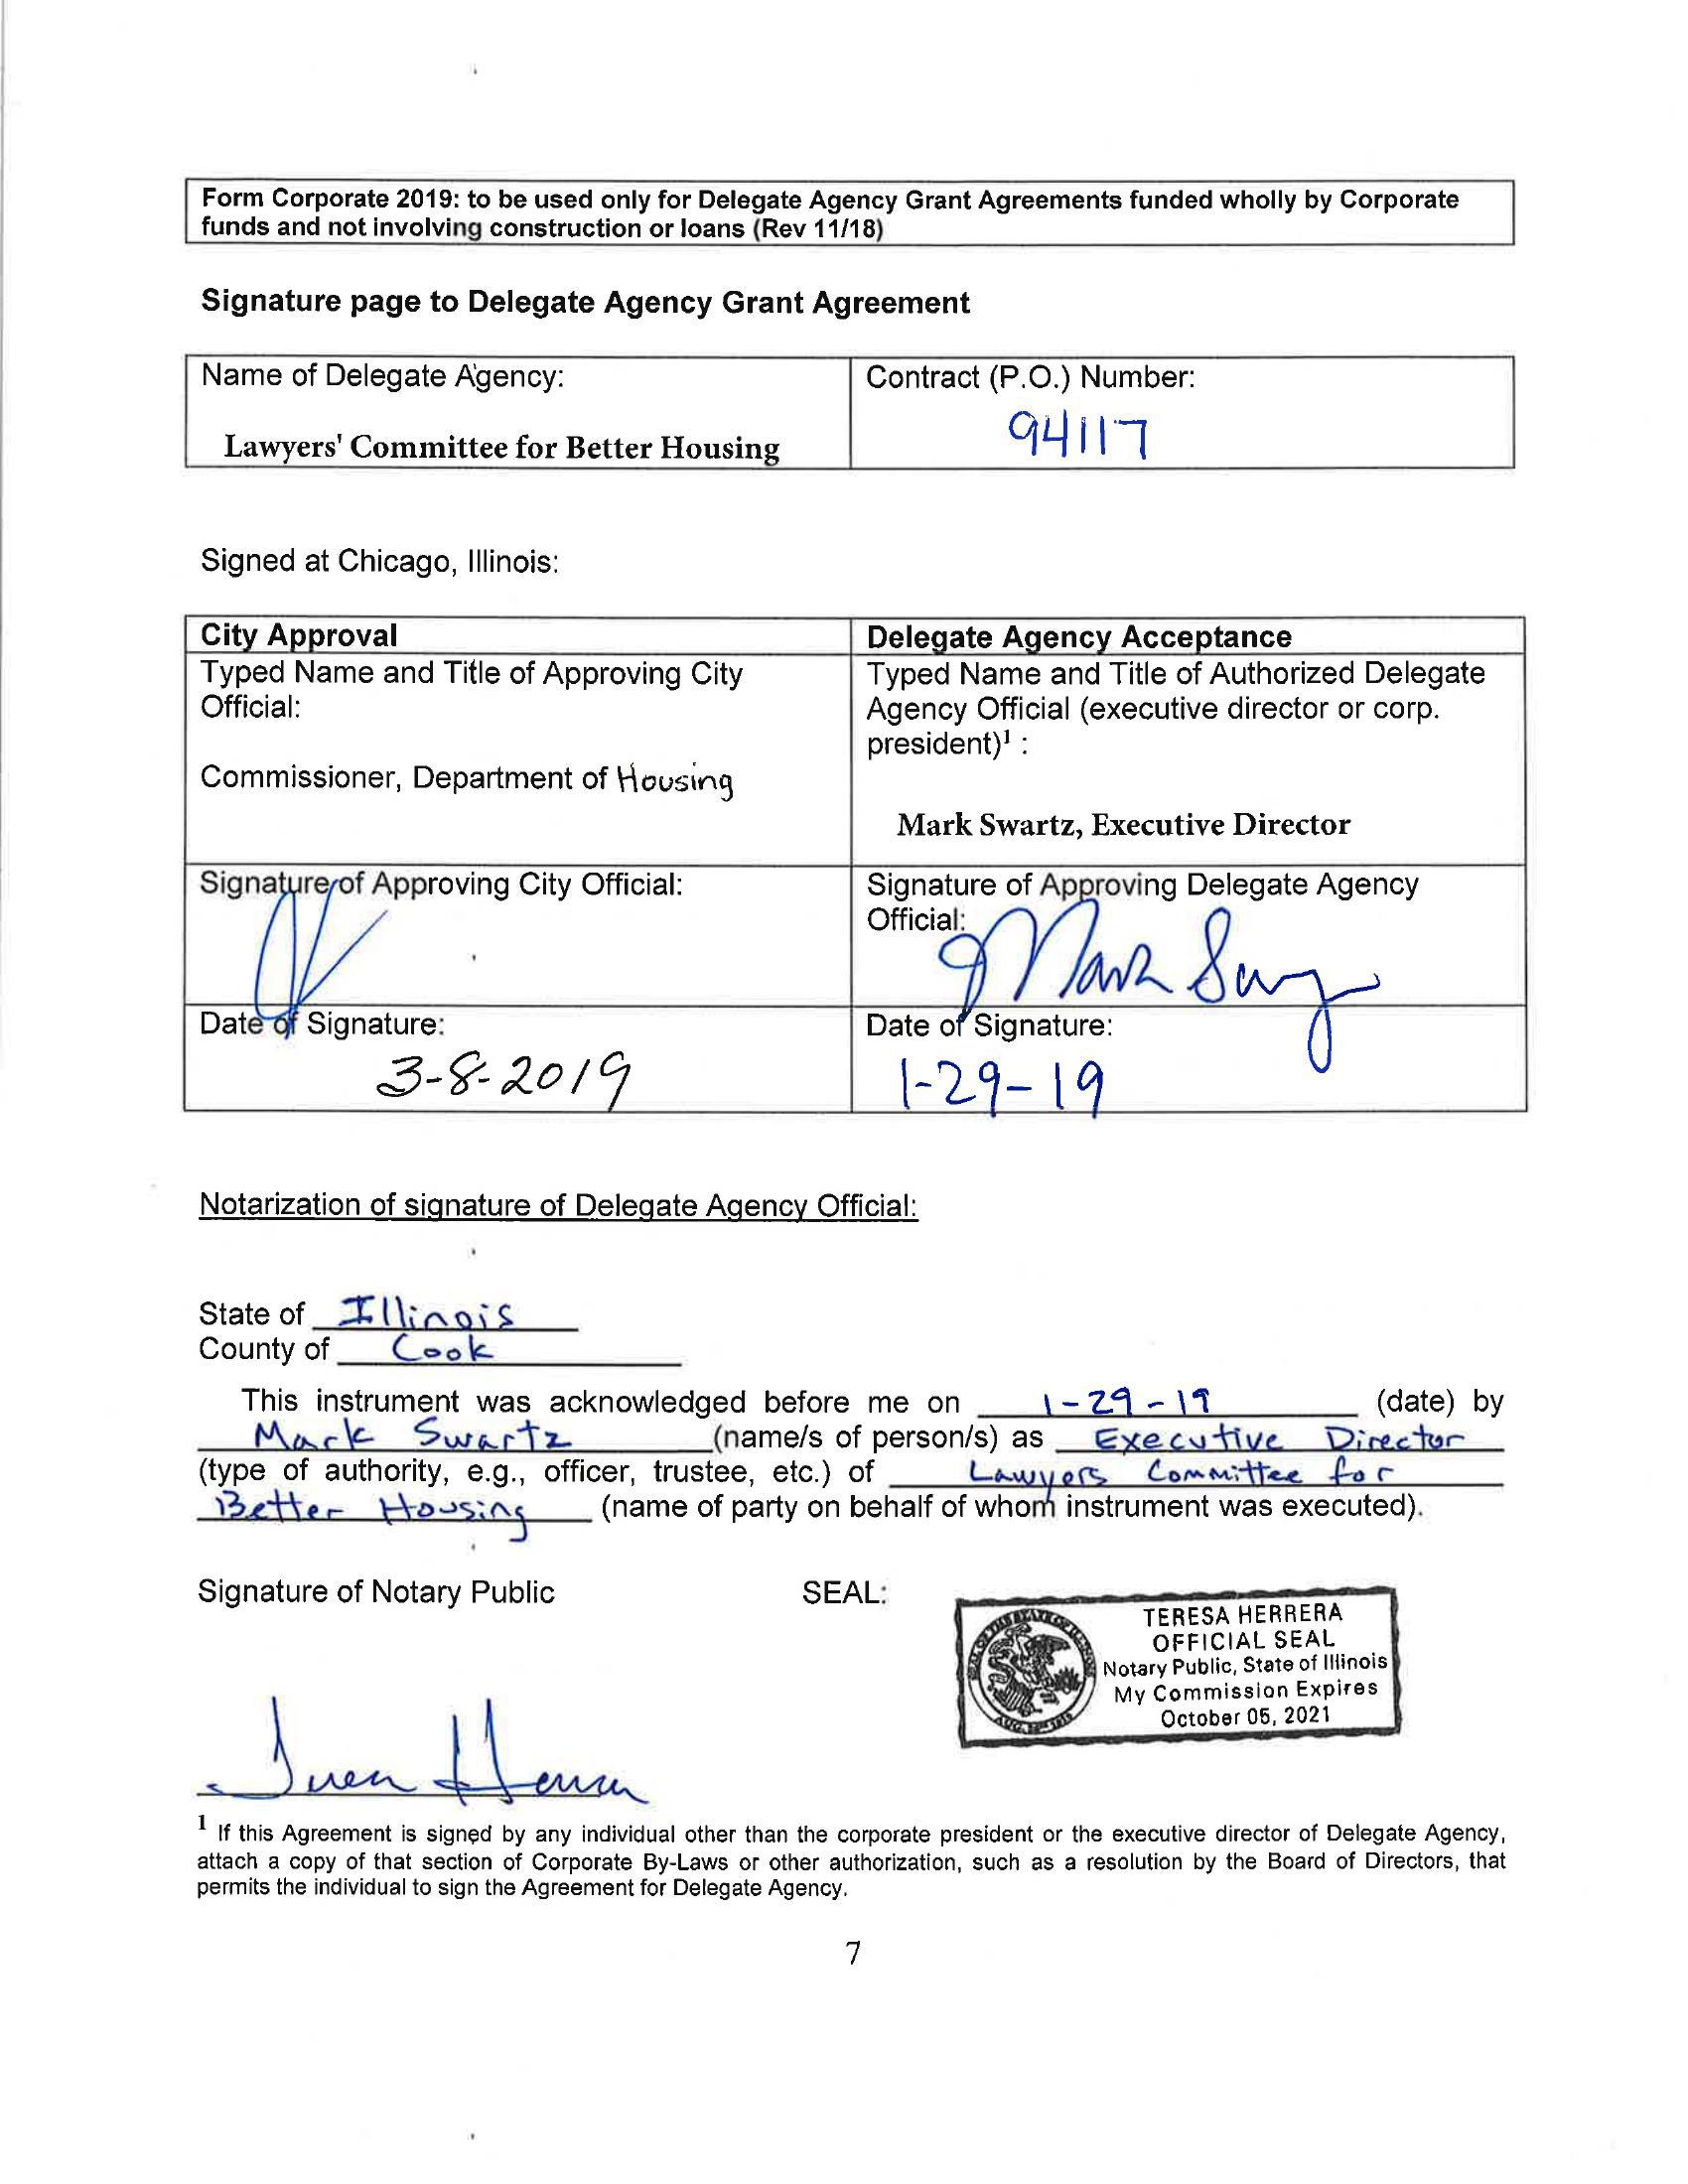 Form Corporate 2019: to be used only for Delegate Agency Grant Agreements funded wholly by Corporate
funds and not involving construction or loans (Rev 11/18)
Signature page to Delegate Agency Grant Agreement
Name of Delegate Agency:
Lawyers' Committee for Better Housing
Contract (P.O.) Number:
94117
Signed at Chicago, Illinois:
City Approval
Typed Name and Title of Approving City
Official:
Commissioner, Department of Housing
Delegate Agency Acceptance
Typed Name and Title of Authorized Delegate
Agency Official (executive director or corp.
president)¹ :
Mark Swartz, Executive Director
Signature of Approving City Official:
Signature of Approving Delegate Agency
Official:
Mark
Date of Signature:
3-8-2019
Date of Signature:
1-29-19
Notarization of signature of Delegate Agency Official:
State of Illinois
County of Cook
This instrument was acknowledged before me on 1-29-19 (date) by
Mark Swartz (name/s of person/s) as Executive Director
(type of authority, e.g., officer, trustee, etc.) of Lawyers Committee for
Better Housing (name of party on behalf of whom instrument was executed).
Signature of Notary Public
SEAL:
TERESA HERRERA
OFFICIAL SEAL
Notary Public, State of Illinois
My Commission Expires
October 05, 2021
¹ If this Agreement is signed by any individual other than the corporate president or the executive director of Delegate Agency,
attach a copy of that section of Corporate By-Laws or other authorization, such as a resolution by the Board of Directors, that
permits the individual to sign the Agreement for Delegate Agency.
7